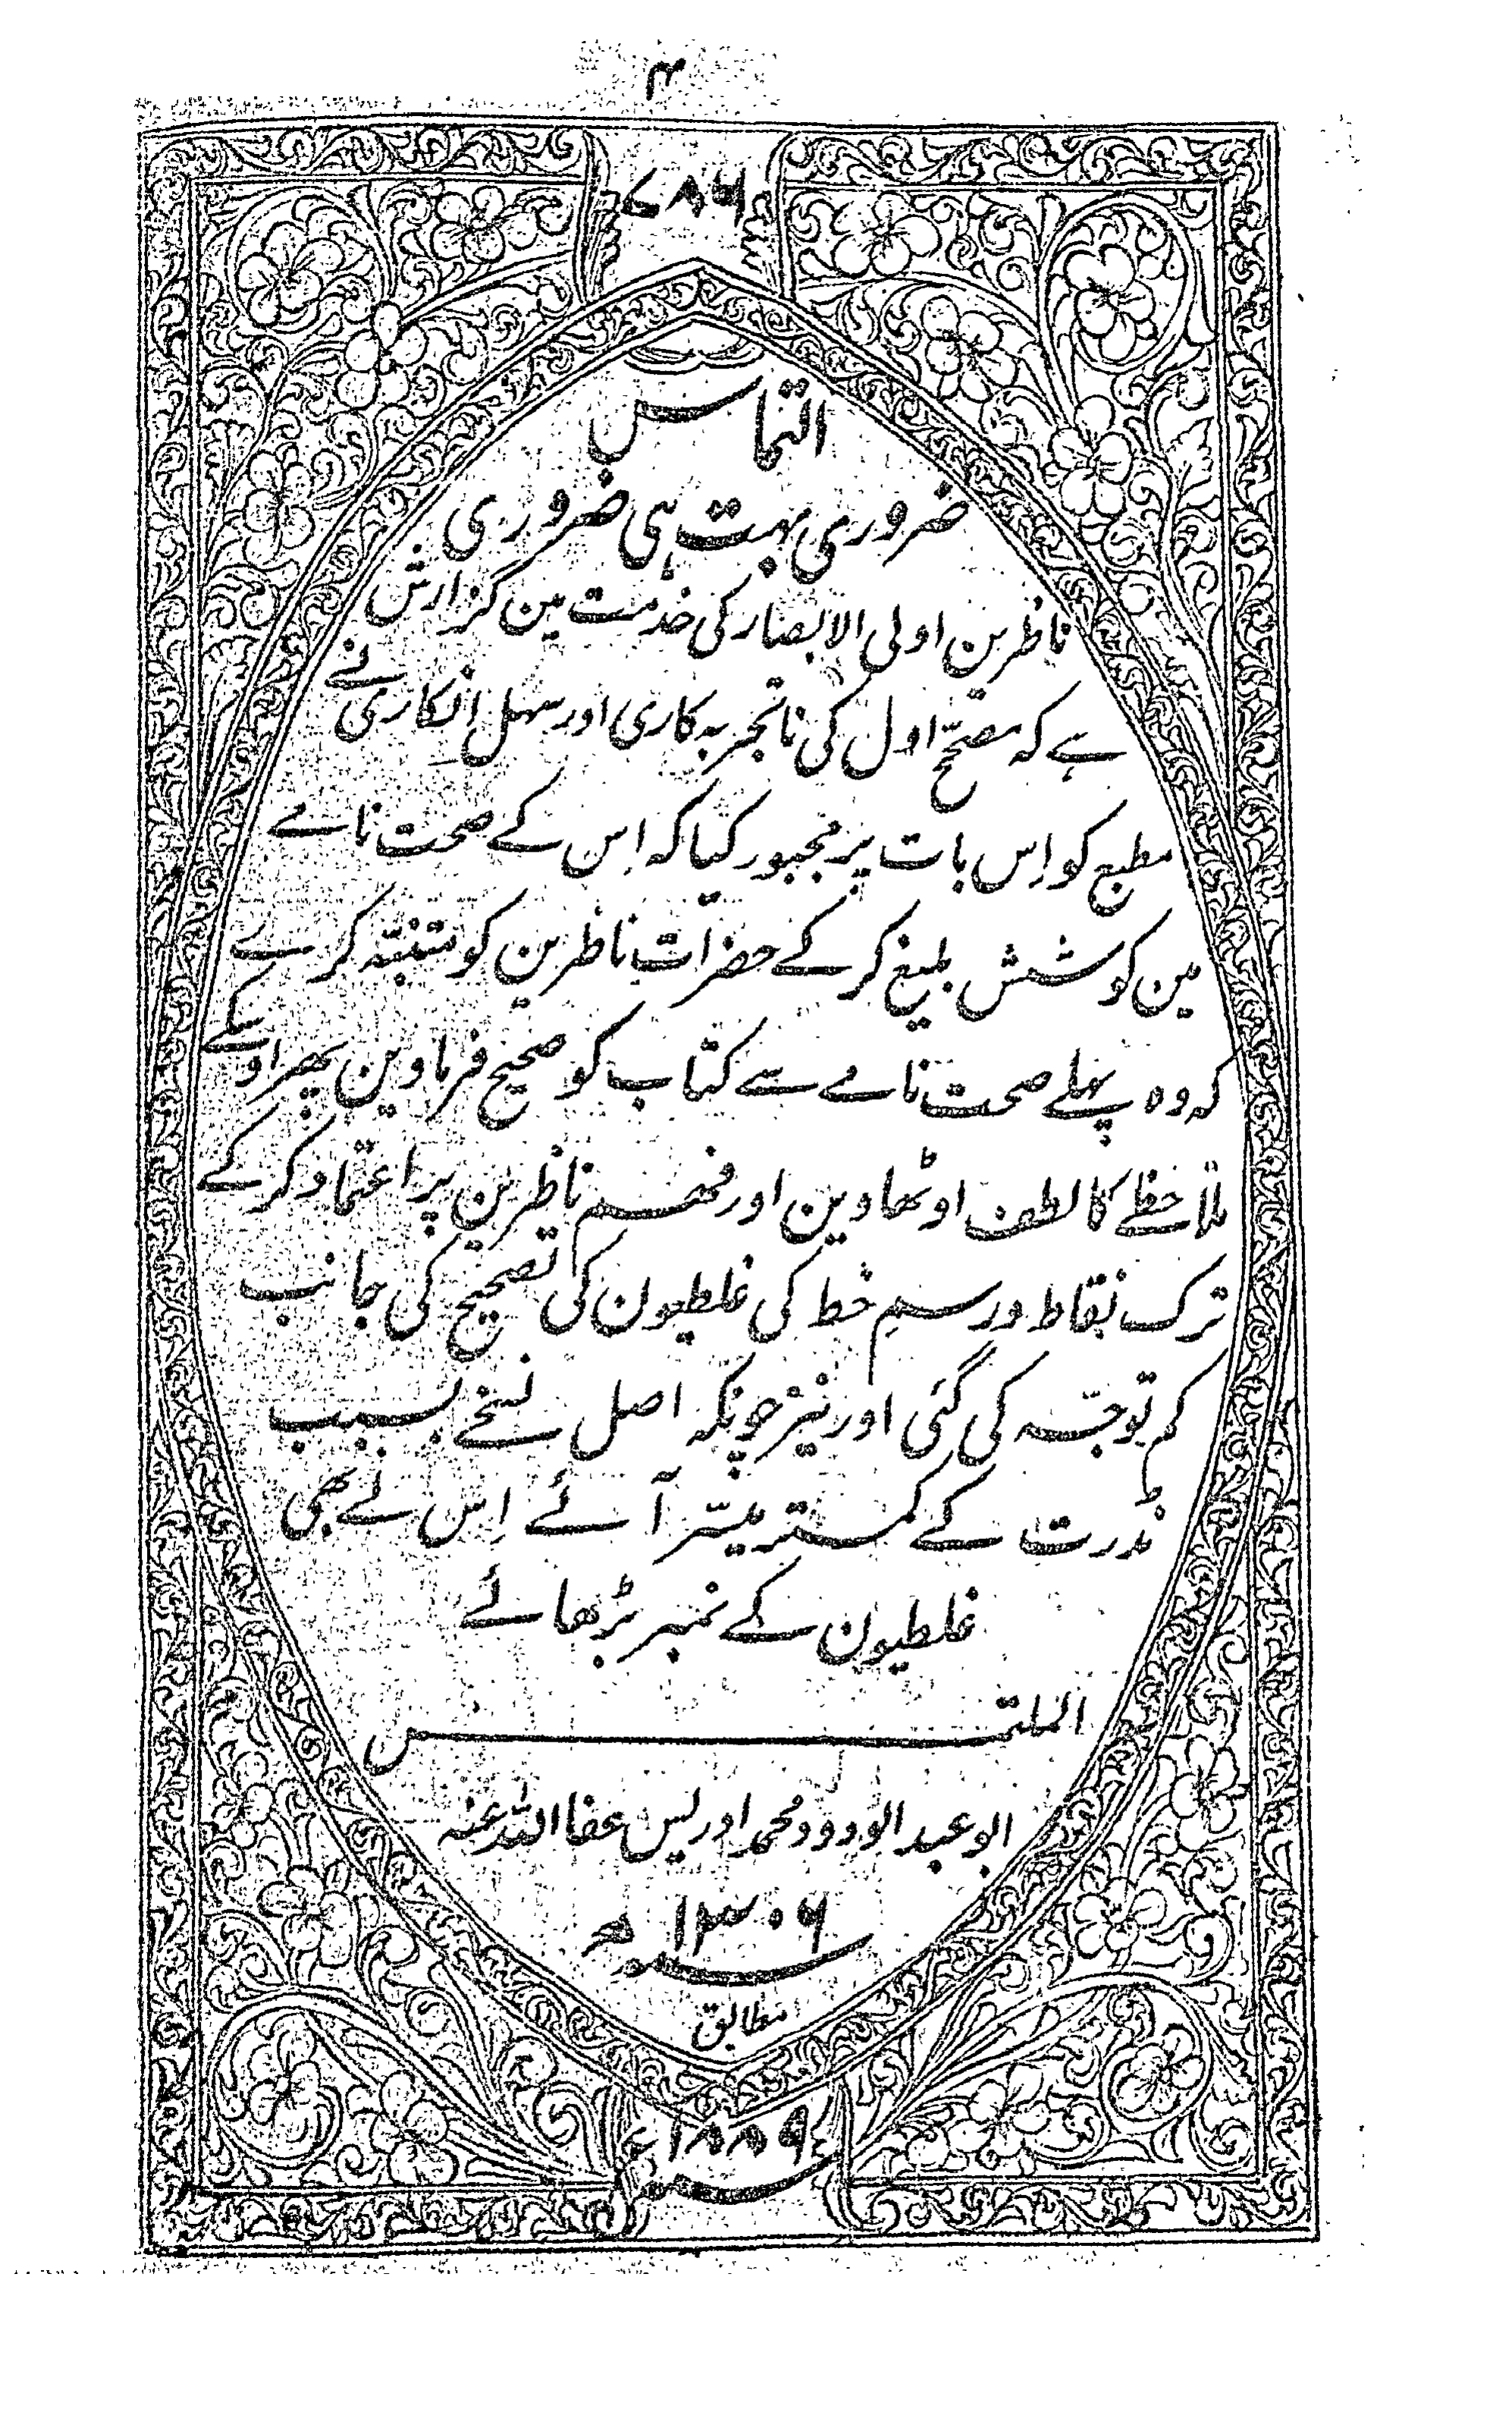 ۳
۷۸۶
التماس
ضروری بہت ہی ضروری
ناظرین اولی الابصار کی خدمت مین گزارش
ہے کہ مصحّح اول کی ناتجربہ کاری اور سہل انکاری نے
مطبع کو اِس بات پر مجبور کیا کہ اِس کے صحت نامے
مین کوشش بلیغ کر کے حضرات ناظرین کو متنبّہ کرے
کہ وہ پہلے صحت نامے سے کتاب کو صحیح فرماوین پھر اوسکے
ملاحظے کا لطف اوٹھاوین اور فہم ناظرین پر اعتماد کر کے
ترک نقاط و رسمِ خط کی غلطیون کی تصحیح کی جانب
کم توجّہ کی گئی اور نیز چونکہ اصل نسخے بسبب
ندرت کے کمتر میسّر آئے اِس نے بھی
غلطیون کے نمبر بڑھائے
الملتمس
ابو عبد الودود محمد ادریس عفا اللہ عنہ
۱۳۰۶ھ
مطابق
۱۸۸۹ء